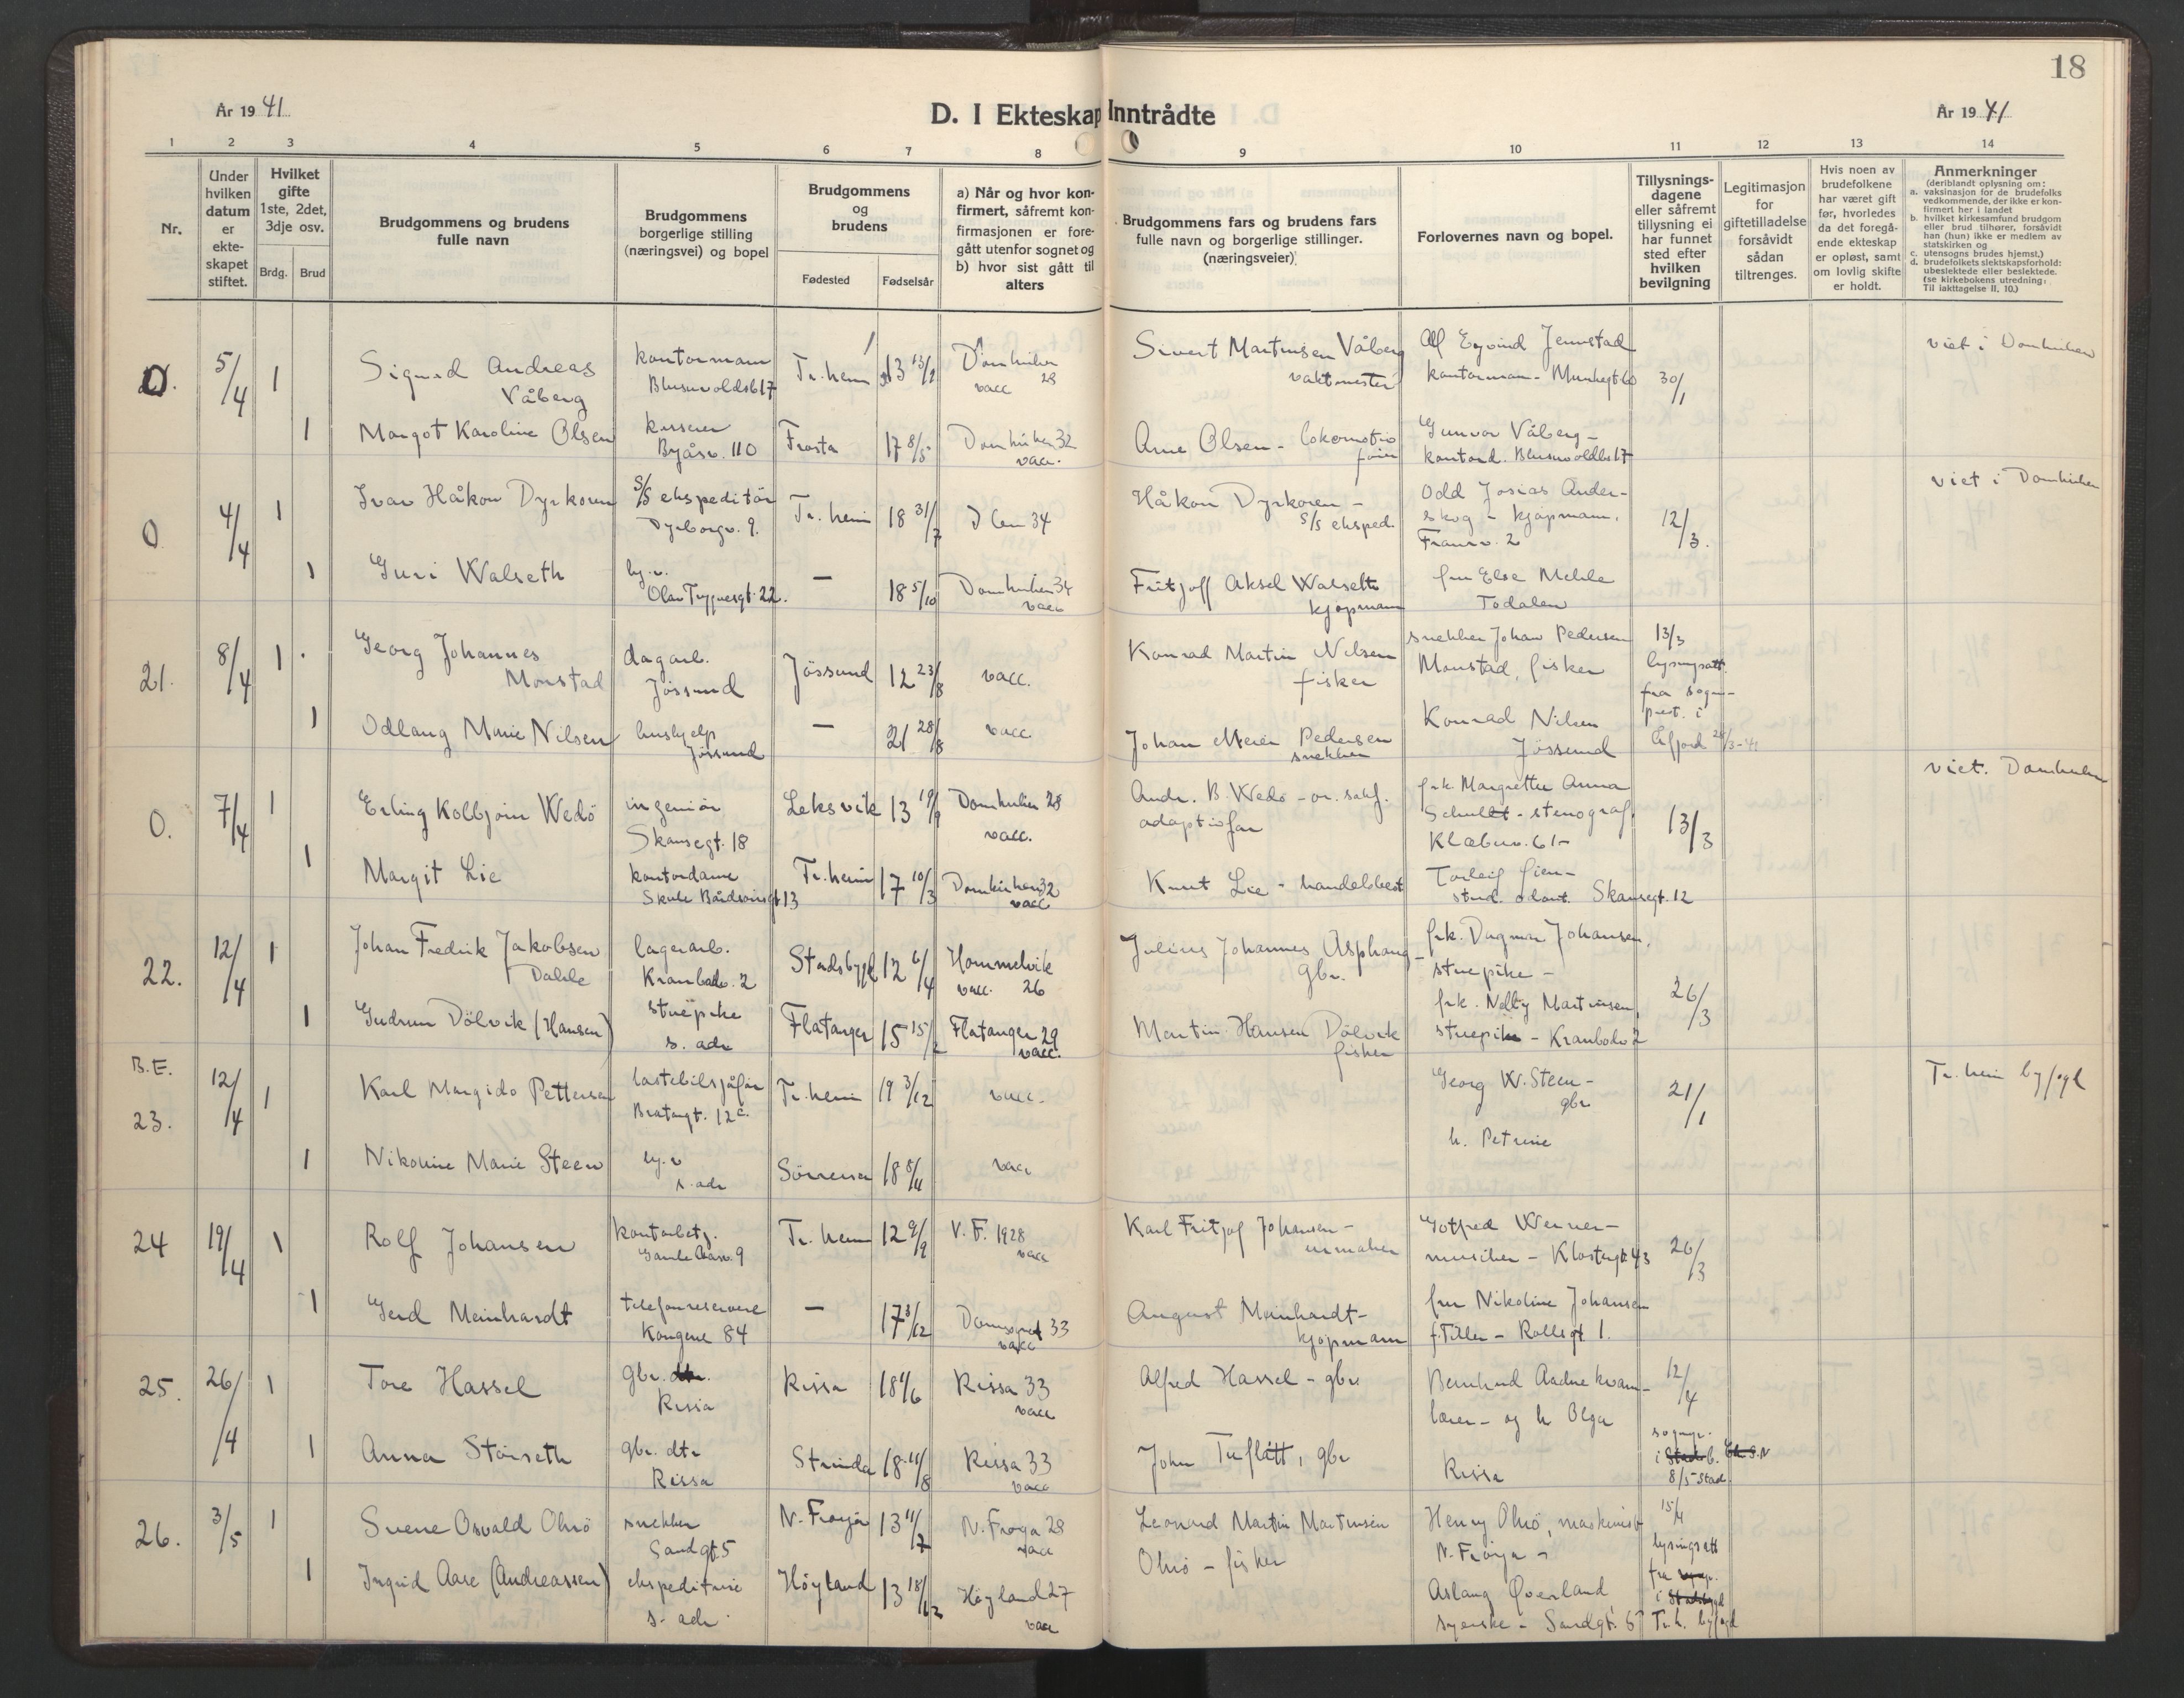 18
År 1941
D. I Ekteskap Inntrådte
År 1941
1 2 3 4 5 6 7 8 9 10 11 12 13 14
Nr.
Under
hvilken
datum
er
ekte-
skapet
stiftet.
Hvilket
gifte
1ste, 2det,
3dje osv.
Brdg.
Brud
Brudgommens og brudens
fulle navn
Brudgommens
borgerlige stilling
(næringsvei) og bopel
Brudgommens
og
brudens
Fødested
Fødselsår
a) Når og hvor kon-
firmert, såfremt kon-
firmasjonen er fore-
gått utenfor sognet og
b) hvor sist gått til
alters
Brudgommens fars og brudens fars
fulle navn og borgerlige stillinger.
(næringsveier)
Forlovernes navn og bopel.
Tillysnings-
dagene
eller såfremt
tillysning ei
har funnet
sted efter
hvilken
bevilgning
Legitimasjon
for
giftetilladelse
forsåvidt
sådan
tiltrenges.
Hvis noen av
brudefolkene
har været gift
før, hvorledes
da det foregå-
ende ekteskap
er opløst, samt
om lovlig skifte
er holdt.
Anmerkninger
(deriblandt oplysning om:
a. vaksinasjon for de brudefolks
vedkommende, der ikke er kon-
firmert her i landet
b. hvilket kirkesamfund brudgom
eller brud tilhører, forsåvidt
han (hun) ikke er medlem av
statskirken og
c. utensogns brudes hjemst.)
d. brudefolkets slektskapsforhold:
ubeslektede eller beslektede.
(se kirkebokens utredning:
Til iakttagelse II, 10.)
0. 5/4 1
Sigurd Andreas
Våberg
kontormann
Tr.heim 13 13/2
Domkirken
vacc 28
Sivert Martinsen Våberg
vaktmester
Alf Eyvind Jennstad
kontorman -
30/1
viet i Domkirken
1 Margot Karoline Olsen
Byåsv. 110
Frosta 17 8/5
Domkirken 32
vacc.
Arne Olsen - lokomotiv
Gunvor Våberg -
0 4/4 1
Ivar Håkon Dyrkoren
S/S ekspeditør
Dyrborgv. 9.
Tr.heim 18 31/7
34
Håkon Dyrkoren -
S/S eksped.
Odd Josias Ander-
skog - kjøpmann.
12/3.
viet i Domkirken
1 Guri Walseth
Olav Tryggvesgt. 22.
— 18 5/10
Domkirken 34
vacc
Fritjoff Aksel Walseth
kjøpmann
fru Else Melde
Todalen
21. 8/4 1
Georg Johannes
Monstad
dagarb.
Jössund
Jössund 12 23/8
vacc.
Konrad Martin Nilsen
fisker
snekker Johan Pedersen
Monstad, fisker
13/3
lysningsatt.
fra sogne-
prest. i
1 Odlaug Marie Nilsen
hushjelp
Jössund
— 21 28/8
vacc.
Johan Meier Pedersen
snekker
Konrad Nilsen
Jössund
Åfjord
0. 7/4 1
Erling Kolbjørn Wedö
ingeniør
Skansegt. 18
Leksvik 13 19/9
Domkirken 28
vacc.
Andr. B. Wedö -
adoptivfar
frk. Margrethe Anna
- stenograf.
Klæbuv. 61 -
13/3
viet. Domkirken
1 Margit Lie
kontordame
Skule Bårdsonsgt 13
Tr.heim 17 10/3
Domkirken 32
vacc
Knut Lie - handelsbest
Torleif
stud. odont. Skansegt. 12
22. 12/4 1
Johan Fredrik Jakobsen
Dahle
lagerarb.
Kranbodv. 2
Stadsbygd 12 6/4
Hommelvik
vacc. 26
Julius Johannes Asphaug -
gbr.
frk. Dagmar Johansen,
stuepike -
26/3
1 Gudrun Dölvik (Hansen)
stuepike
s. adr
Flatanger 15
Flatanger 29
vacc.
Martin Hansen Dölvik
fisker
frk. Nelly Martinsen,
stuepike - Kranbodv 2
B.E.
23. 12/4 1
Karl Margido Pettersen
lastebilsjåfør
Bratørgt. 12c.
Tr.heim 19 3/12
vacc.
Georg W. Steen -
gbr
21/1
Tr.heim byfogd
1 Nikoline Marie Steen
s. adr
vacc
h. Petrine
24 19/4 1
Rolf Johansen
kontorbetj.
Tr.heim 12 9/9
V.F. 1928
vacc
Karl Fritjof Johansen -
urmaker
Gotfred Werner -
musiker - Klostergt. 43
26/3
1 Gerd Meinhardt
telefonreservere
Kongens 84
— 17 3/12
33
vacc
August Meinhardt -
kjøpmann
fru Nikoline Johansen
f. Tiller - Rollsgt 1.
25. 26/4 1
Tore Hassel
gbr.
Rissa
Rissa 18 4/6
Rissa 33
vacc
Alfred Hassel - gbr
Bernhard
lærer - og h Olga
12/4
1 Anna Störseth
gbr. dtr
Rissa
Strinda 18 11/8
Rissa 33
vacc
John Tuflått, gbr
Rissa
sognepr.
8/5 Stad
26. 3/5 1
Sverre Osvald Ohrö
snekker
Sandgt. 5
N. Frøya 13 11/7
N. Frøya 28
vacc
Leonard Martin Martinsen
Ohrö - fisker
Henry Ohrö, maskinist
N. Frøya -
15/4
lysningsatt
1 Ingrid Aase (Andreassen)
ekspeditrise
s. adr
Höyland 13
Höyland 27
vacc
Aslaug Øverland,
syerske - Sandgt. 5
Tr.h. byfogd